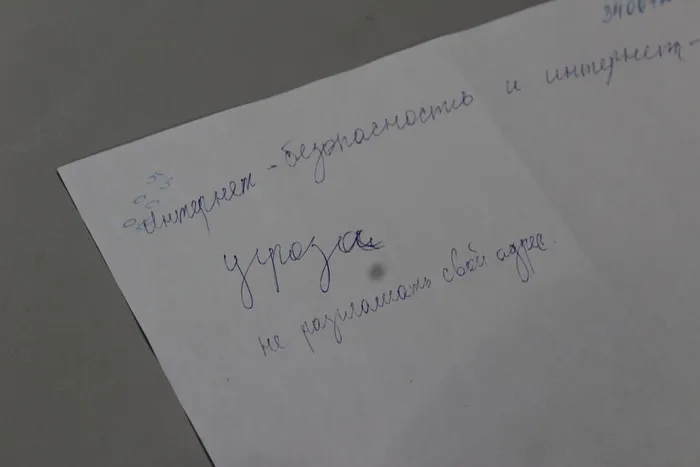 Интернет-безопасность и интернет-
угроза
не разглашать свой адрес.